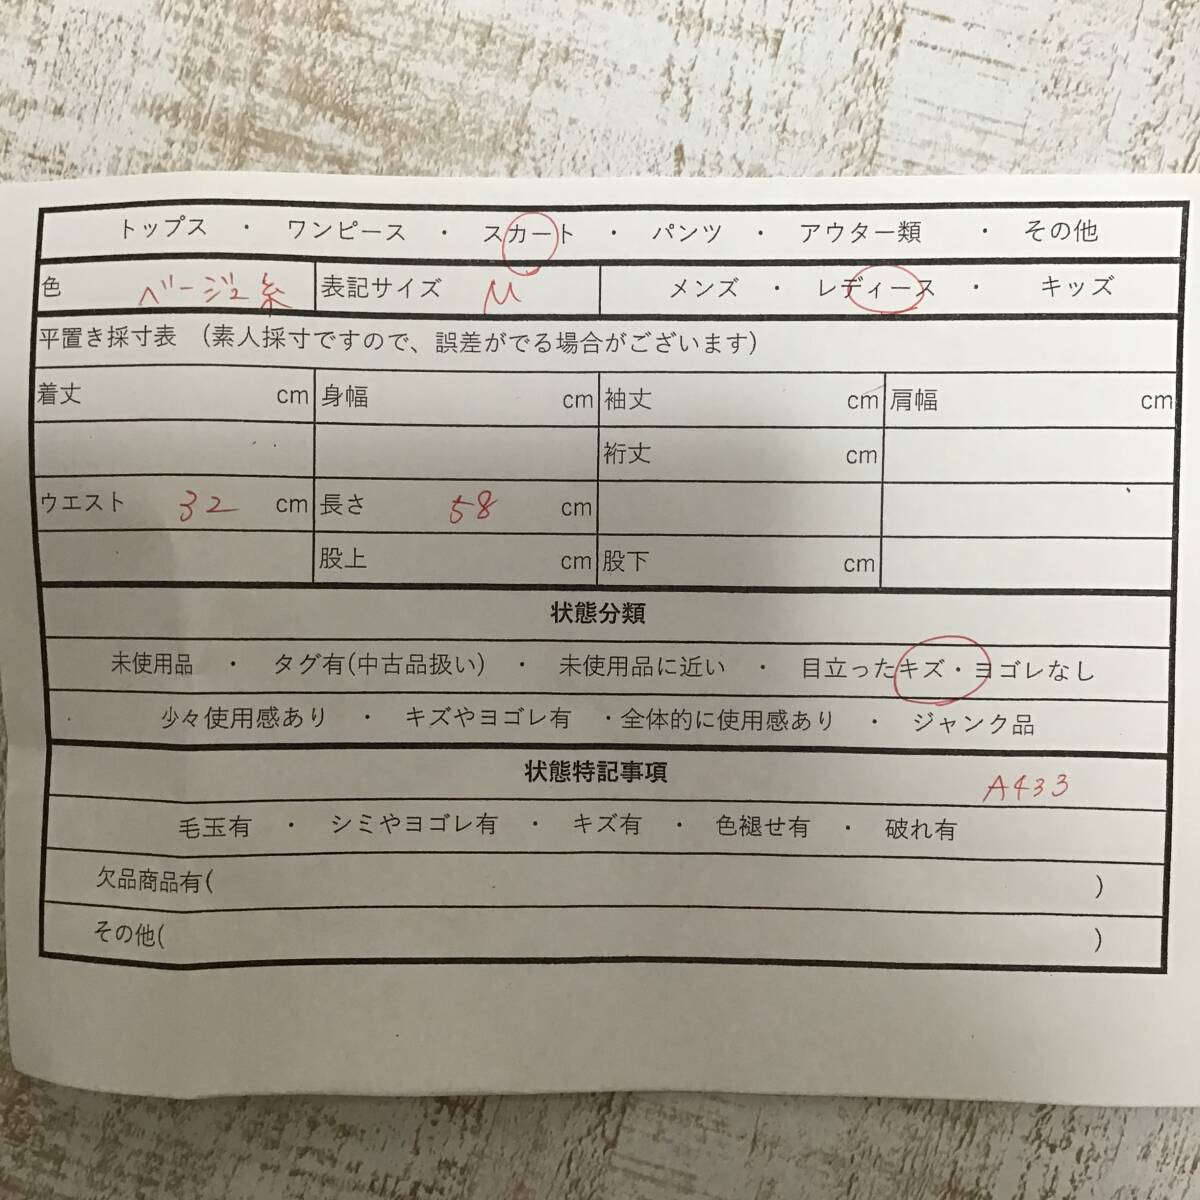 トップス ・ ワンピース ・ スカート ・ パンツ ・ アウター類 ・ その他
色 ベージュ系 表記サイズ M メンズ ・ レディース ・ キッズ
平置き採寸表 （素人採寸ですので、誤差がでる場合がございます）
着丈 cm 身幅 cm 袖丈 cm 肩幅 cm
裄丈 cm
ウエスト 32 cm 長さ 58 cm
股上 cm 股下 cm
状態分類
未使用品 ・ タグ有(中古品扱い) ・ 未使用品に近い ・ 目立ったキズ・ヨゴレなし
少々使用感あり ・ キズやヨゴレ有 ・全体的に使用感あり ・ ジャンク品
状態特記事項 A433
毛玉有 ・ シミやヨゴレ有 ・ キズ有 ・ 色褪せ有 ・ 破れ有
欠品商品有( )
その他( )